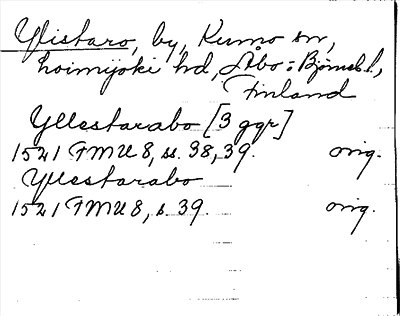 Ylistaro, by, Kumo sn,
Loimijoki hd, Åbo o. Björneb. l.,
Finland
Yllestarabo [3 ggr]
1521 FMU 8, ss. 38, 39. orig.
Yllestarabo
1521 FMU 8, s. 39. orig.